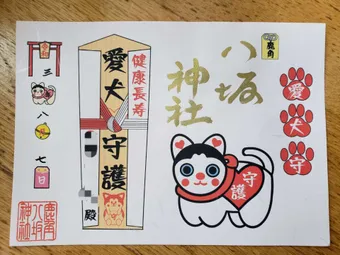 鹿角
八坂
神社
愛
犬
守
守
護
健康長寿
愛犬
守護
殿
三
八
七
日
鹿角
八坂
神社